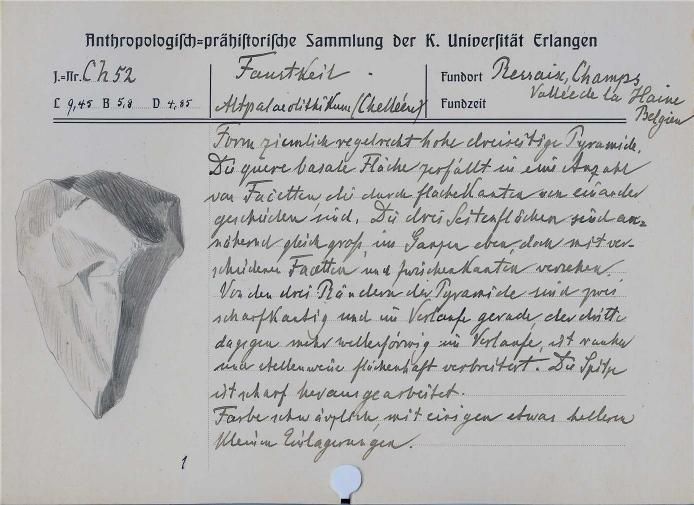 Anthropologisch=prähistorische Sammlung der K. Universität Erlangen
J.=Nr. Ch 52
L 9,45 B 5,8 D 4,85
Faustkeil.
Altpalaeolithikum (Chelléen)
Fundort Ressaix, Champs
Vallée de la Haine
Belgien
Fundzeit
Form ziemlich regelrecht hohe dreiseitige Pyramide.
Die quere basale Fläche zerfällt in eine Anzahl
von Facetten, die durch flache Kanten von einander
geschieden sind. Die drei Seitenflächen sind an=
nähernd gleich groß, im Ganzen eben, doch mit ver-
schiedenen Facetten und Zwischenkanten versehen.
Von den drei Rändern der Pyramide sind zwei
scharfkantig und im Verlaufe gerade, der dritte
dagegen mehr wellenförmig im Verlaufe, ist rauher
und stellenweise flächenhaft verbreitert. Die Spitze
ist scharf herausgearbeitet.
Farbe schwärzlich, mit einigen etwas helleren
kleinen Einlagerungen.
1